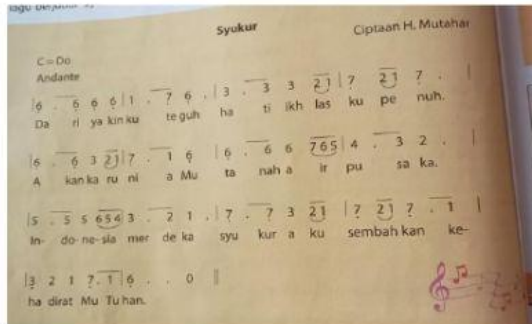 Syukur
Ciptaan H. Mutahar
C = Do
Andante
|6 . 6 6 6|1 . 7 6 . |3 . 3 3 21|7 21 7 . |
Da ri ya kin ku te guh ha ti ikh las ku pe nuh.
|6 . 6 3 21|7 . 1 6 |6 . 6 6 765|4 . 3 2 . |
A kan ka ru ni a Mu ta nah a ir pu sa ka.
|5 . 5 5 654|3 . 2 1 . |7 . 7 3 21 |7 21 7 . 1 |
In- do- ne- sia mer de ka syu kur a ku sembah kan ke-
|3 2 1 7 . 1|6 . . 0 ||
ha dirat Mu Tu han.